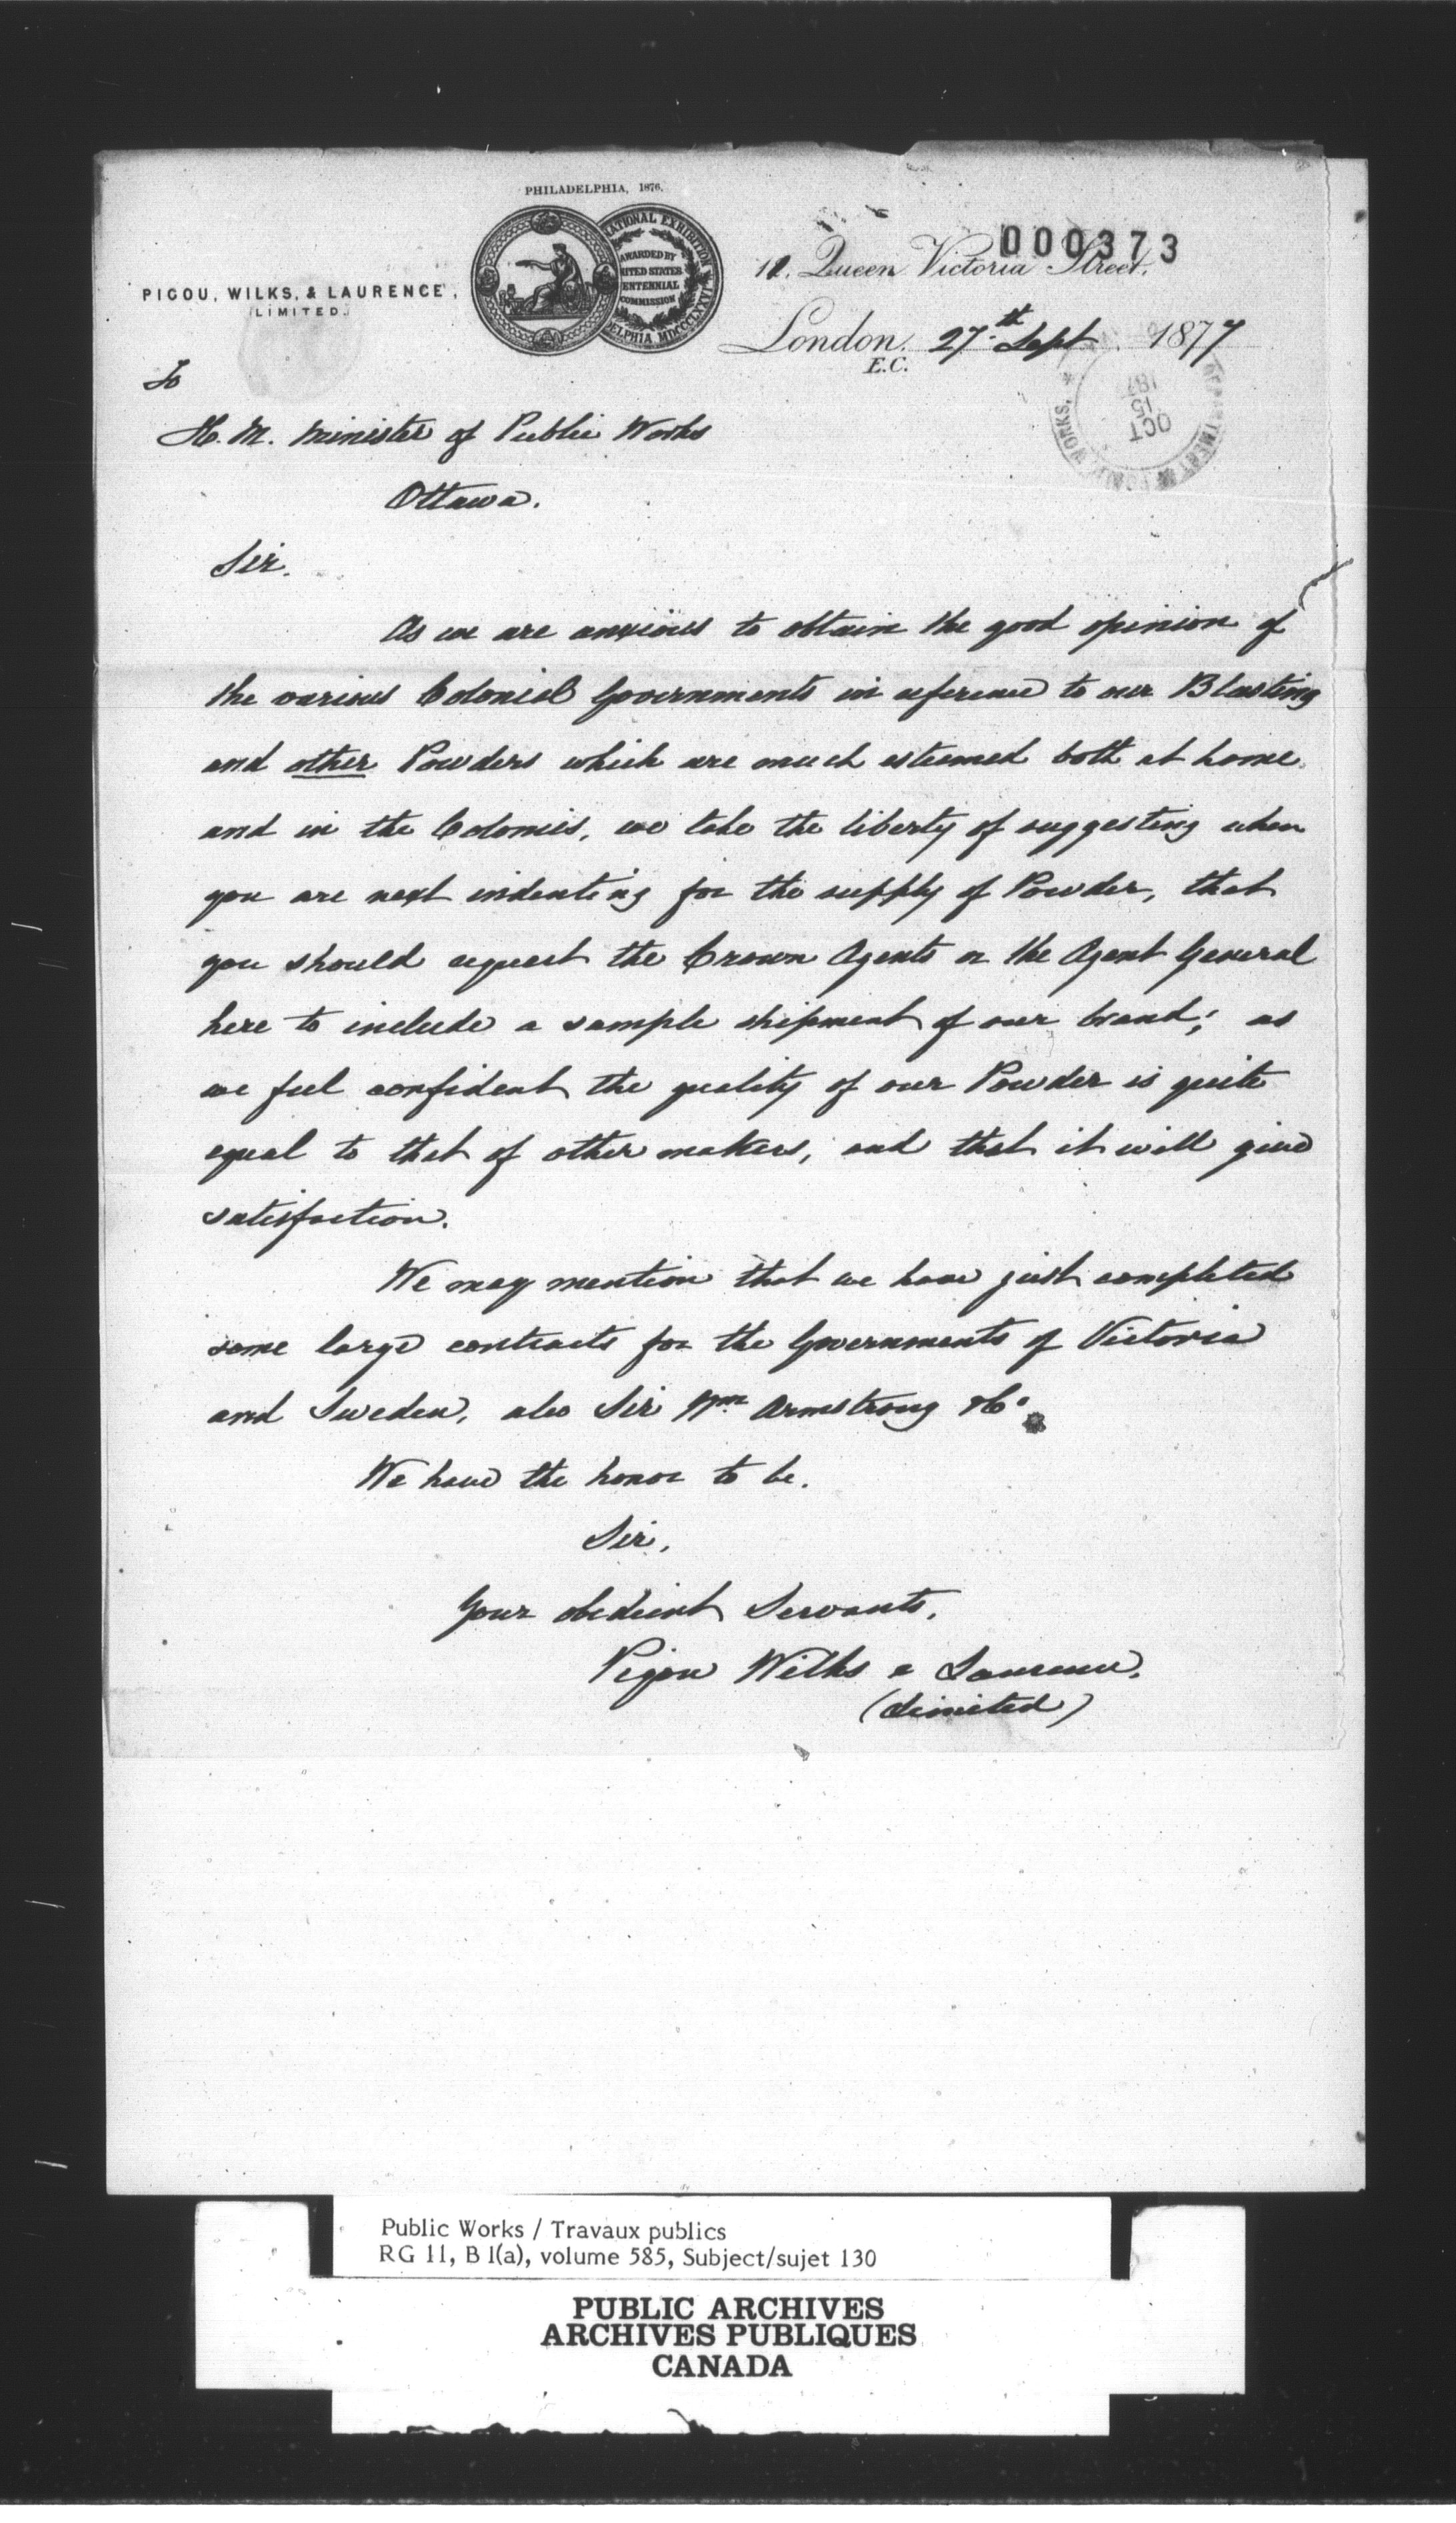 PHILADELPHIA, 1876.
000373
PIGOU, WILKS, & LAURENCE,
(LIMITED.)
AWARDED BY
UNITED STATES
CENTENNIAL
COMMISSION
Queen Victoria Street,
London, 27th Sept 1877
E.C.
OCT
15
187
To
H. M. Minister of Public Works
Ottawa.
Sir.
As we are anxious to obtain the good opinion of
the various Colonial Governments in reference to our Blasting
and other Powders which are much esteemed both at home
and in the Colonies, we take the liberty of suggesting when
you are next indenting for the supply of Powder, that
you should request the Crown Agents or the Agent General
here to include a sample shipment of our brand; as
we feel confident the quality of our Powder is quite
equal to that of other makers, and that it will give
satisfaction.
We may mention that we have just completed
some large contracts for the Governments of Victoria
and Sweden, also Sir Wm Armstrong & Co.
We have the honor to be.
Sir,
Your obedient Servants,
Pigou Wilks & Laurence,
(Limited)
Public Works / Travaux publics
RG 11, B 1(a), volume 585, Subject/sujet 130
PUBLIC ARCHIVES
ARCHIVES PUBLIQUES
CANADA